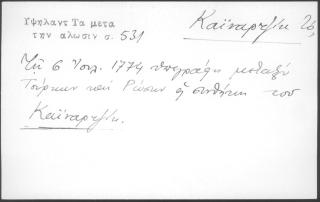 Υψηλαντ Τα μετα
την αλωσιν σ. 531
Καϊναρτζίκ
Τῇ 6 Ἰουλ. 1774 ὑπεγράφη μεταξὺ
Τούρκων καὶ Ρώσων ἡ συνθήκη του
Καϊναρτζίκ.